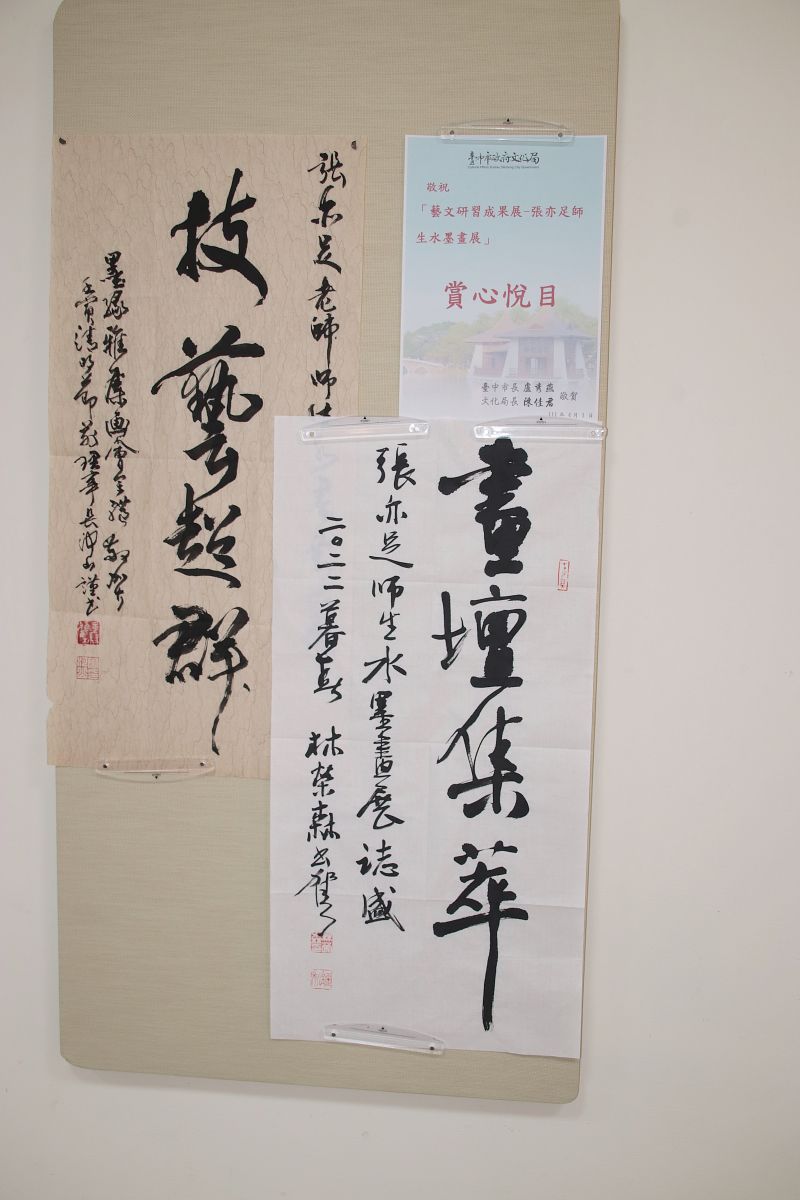 張亦足老師師生
技藝超群
墨緣雅集畫會全體敬賀
壬寅清明節前理事長
謹書
臺中市政府文化局
敬祝
「藝文研習成果展-張亦足師
生水墨畫展」
賞心悅目
臺中市長 盧秀燕
文化局長 陳佳君
敬賀
畫壇集萃
張亦足師生水墨畫展誌盛
二〇二二暮春 林榮森書賀